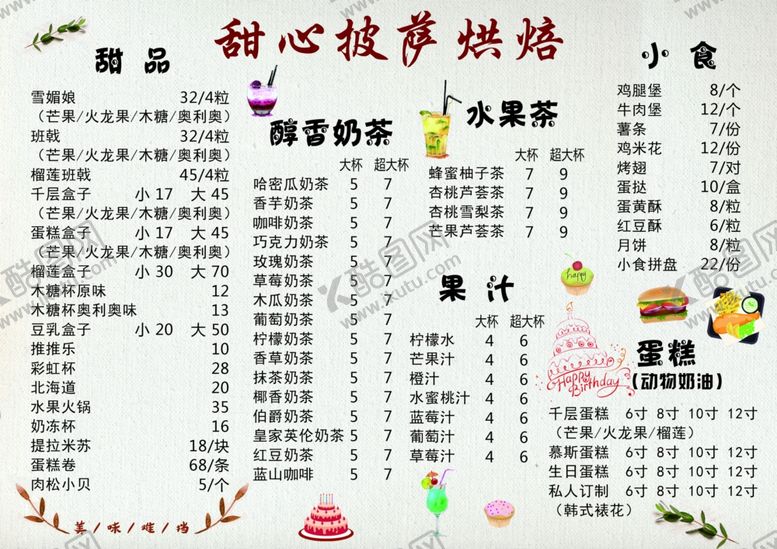 甜心披萨烘焙
甜品
雪媚娘 32/4粒
（芒果/火龙果/木糖/奥利奥）
班戟 32/4粒
（芒果/火龙果/木糖/奥利奥）
榴莲班戟 45/4粒
千层盒子 小 17 大 45
（芒果/火龙果/木糖/奥利奥）
蛋糕盒子 小 17 大 45
（芒果/火龙果/木糖/奥利奥）
榴莲盒子 小 30 大 70
木糖杯原味 12
木糖杯奥利奥味 13
豆乳盒子 小 20 大 50
推推乐 10
彩虹杯 28
北海道 20
水果火锅 35
奶冻杯 16
提拉米苏 18/块
蛋糕卷 68/条
肉松小贝 5/个
美/味/难/挡
醇香奶茶
大杯 超大杯
哈密瓜奶茶 5 7
香芋奶茶 5 7
咖啡奶茶 5 7
巧克力奶茶 5 7
玫瑰奶茶 5 7
草莓奶茶 5 7
木瓜奶茶 5 7
葡萄奶茶 5 7
柠檬奶茶 5 7
香草奶茶 5 7
抹茶奶茶 5 7
椰香奶茶 5 7
伯爵奶茶 5 7
皇家英伦奶茶 5 7
红豆奶茶 5 7
蓝山咖啡 5 7
水果茶
大杯 超大杯
蜂蜜柚子茶 7 9
杏桃芦荟茶 7 9
杏桃雪梨茶 7 9
芒果芦荟茶 7 9
果汁
大杯 超大杯
柠檬水 4 6
芒果汁 4 6
橙汁 4 6
水蜜桃汁 4 6
蓝莓汁 4 6
葡萄汁 4 6
草莓汁 4 6
小食
鸡腿堡 8/个
牛肉堡 12/个
薯条 7/份
鸡米花 12/份
烤翅 7/对
蛋挞 10/盒
蛋黄酥 8/粒
红豆酥 6/粒
月饼 8/粒
小食拼盘 22/份
happy
Happy Birthday
蛋糕
（动物奶油）
千层蛋糕 6寸 8寸 10寸 12寸
（芒果/火龙果/榴莲）
慕斯蛋糕 6寸 8寸 10寸 12寸
生日蛋糕 6寸 8寸 10寸 12寸
私人订制 6寸 8寸 10寸 12寸
（韩式裱花）
酷图网
ikutu.com